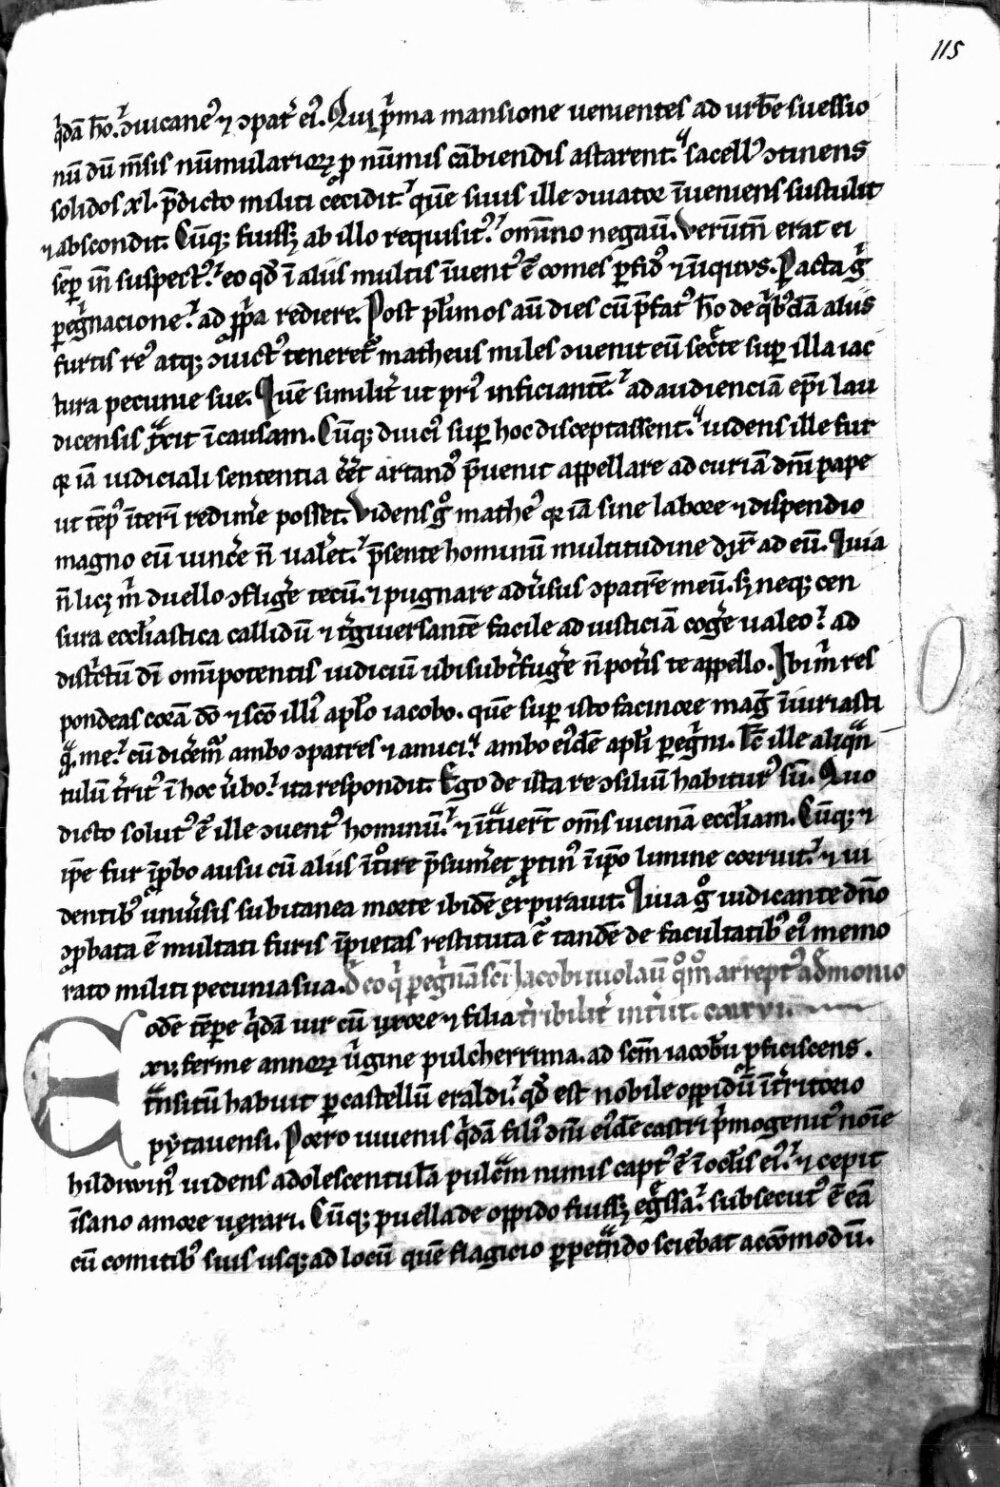 115
q̇dā hō. ꝯuicane᷒ ⁊ ꝯpat̾ ei᷒. Qui p̾ma mansione uenientes ad urbē suessio
nū dū m̄sis nūmularioꝝ ꝓ nūmis cābiendis astarent. sacell᷒ ꝯtinens
solidos xl. p̄dicto militi cecidit. quē suus ille ꝯuiator īueniens sustulit
⁊ abscondit. Cūq; fuiss; ab illo requisit᷒. omīno negauit̄. Verūtn̄ erat ei
sēꝑ in̄ suspect᷒. eo qd̄ ī aliis multis īuent᷒ ē comes ꝑfid᷒ ⁊ īniquus. Pacta g̊
ꝑeg̾nacione. ad ꝓp̾a rediere. Post pl̾imos aū dies cū p̄fat᷒ hō de q̾b᷒dā aliis
furtis re᷒ atq; ꝯuict᷒ teneret᷑ matheus miles ꝯuenit eū sec̾te suꝑ illa iac
tura pecunie sue. Quē similit̾ ut pri᷒ inficiantē. ad audienciā ep̄i lau
dicensis t̾xit ī causam. Cūq; diuci᷒ suꝑ hoc disceptassent. uidens ille fur
qꝛ iā iudiciali sententia eēt artand᷒ p̄uenit appellare ad curiā dn̄i pape
ut tēp᷒ īterī redim̾e posset. Videns g̊ mathe᷒ qꝛ iā sine labore ⁊ dispendio
magno eū uinc̾e n̄ ualet̾. p̄sente hominū multitudine dix̾ ad eū. Quia
n̄ lic; m̾ duello ꝯflig̾e tecū. ⁊ pugnare adu̾sus ꝯpatrē meū. s; neq; cen
sura eccl̄iastica callidū ⁊ t̾guiersantē facile ad iusticiā cog̾e ualeo. ad
dist̾ctū dī omīpotentis iudiciū ubi subt̾fug̾e n̄ pot̾is te appello. Ibi m̾ res
pondeas corā dō ⁊ scō illi᷒ apl̄o iacobo. quē suꝑ isto facinore mag̾ īiuriasti
q̄ me. cū dic̾em᷒ ambo ꝯpatres ⁊ amici. ambo ei᷒dē apl̄i ꝑeg̾ni. Tc̄ ille aliqn̄
tulū t̾rit᷒ ī hoc u̾bo. ita respondit. Ego de ista re ꝯsiliū habitur᷒ sū. Quo
dicto solut᷒ ē ille ꝯuent᷒ hominū. ⁊ īt̾uert̄ om̄s uicinam eccl̄iam. Cūq; ⁊
ip̄e fur īꝓbo ausu cū aliis īt̾re p̄sum̾et ꝓtin᷒ īip̄o limine corruit. ⁊ ui
dentib᷒ uniu̾sis subitanea morte ibidē expirauit. Quia g̊ iudicante dn̄o
ꝯꝓbata ē multati furis īpietas restituta ē tandē de facultatib᷒ ei᷒ memo
rato militi pecunia sua. D̄ eo q̾ ꝑeg̾nā sc̄i Jacobi uiolaū q̊m̊ arrept᷒ a demonio
Eodē tēpe q̾dā uir cū uxore ⁊ filia t̾ribilit̾ int̾iit.
xv. ferme annoꝝ u̾gine pulcherrima. ad scm̄ iacobū ꝓficiscens.
t̾nsitū habuit ꝑ castellū eraldi. qd̄ est nobile oppidū ī t̾ritorio
pytauensi. Porro iuuenis q̾dā fili᷒ dn̄i ei᷒dē castri p̾mogenit᷒ noīe
hildiwin᷒ uidens adolescentulā pulcr̄am nimis capt᷒ ē ī oclis ei᷒. ⁊ cepit
īsano amore uexari. Cūq; puella de oppido fuiss; eg̾ssa. subsecut᷒ ē eā
cū comitib᷒ suis usq; ad locū quē flagicio ꝑpet̾ndo sciebat accōmodū.